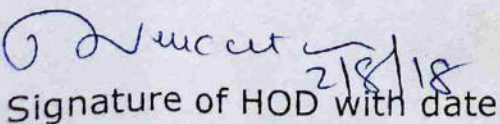 2/8/18
Signature of HOD with date